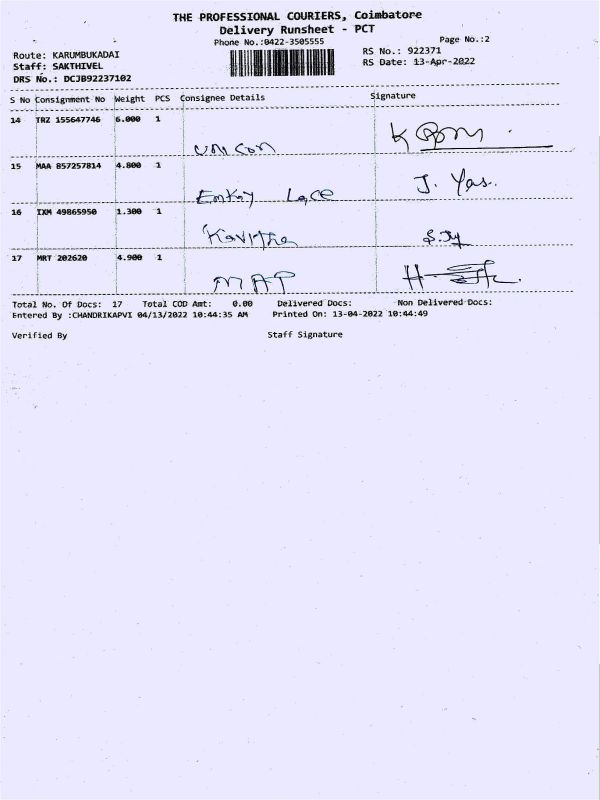 THE PROFESSIONAL COURIERS, Coimbatore
Delivery Runsheet - PCT
Phone No.:0422-3505555
Page No.:2
Route: KARUMBUKADAI
RS No.: 922371
Staff: SAKTHIVEL
RS Date: 13-Apr-2022
DRS No.: DCJB92237102
S No Consignment No Weight PCS Consignee Details Signature
14 TRZ 155647746 6.000 1
UNICON
15 MAA 857257814 4.800 1
Enkay Lace J. Yas.
16 IXM 49865950 1.300 1
Kavitha
17 MRT 202620 4.900 1
MAP
Total No. Of Docs: 17 Total COD Amt: 0.00 Delivered Docs: Non Delivered Docs:
Entered By :CHANDRIKAPVI 04/13/2022 10:44:35 AM Printed On: 13-04-2022 10:44:49
Verified By Staff Signature